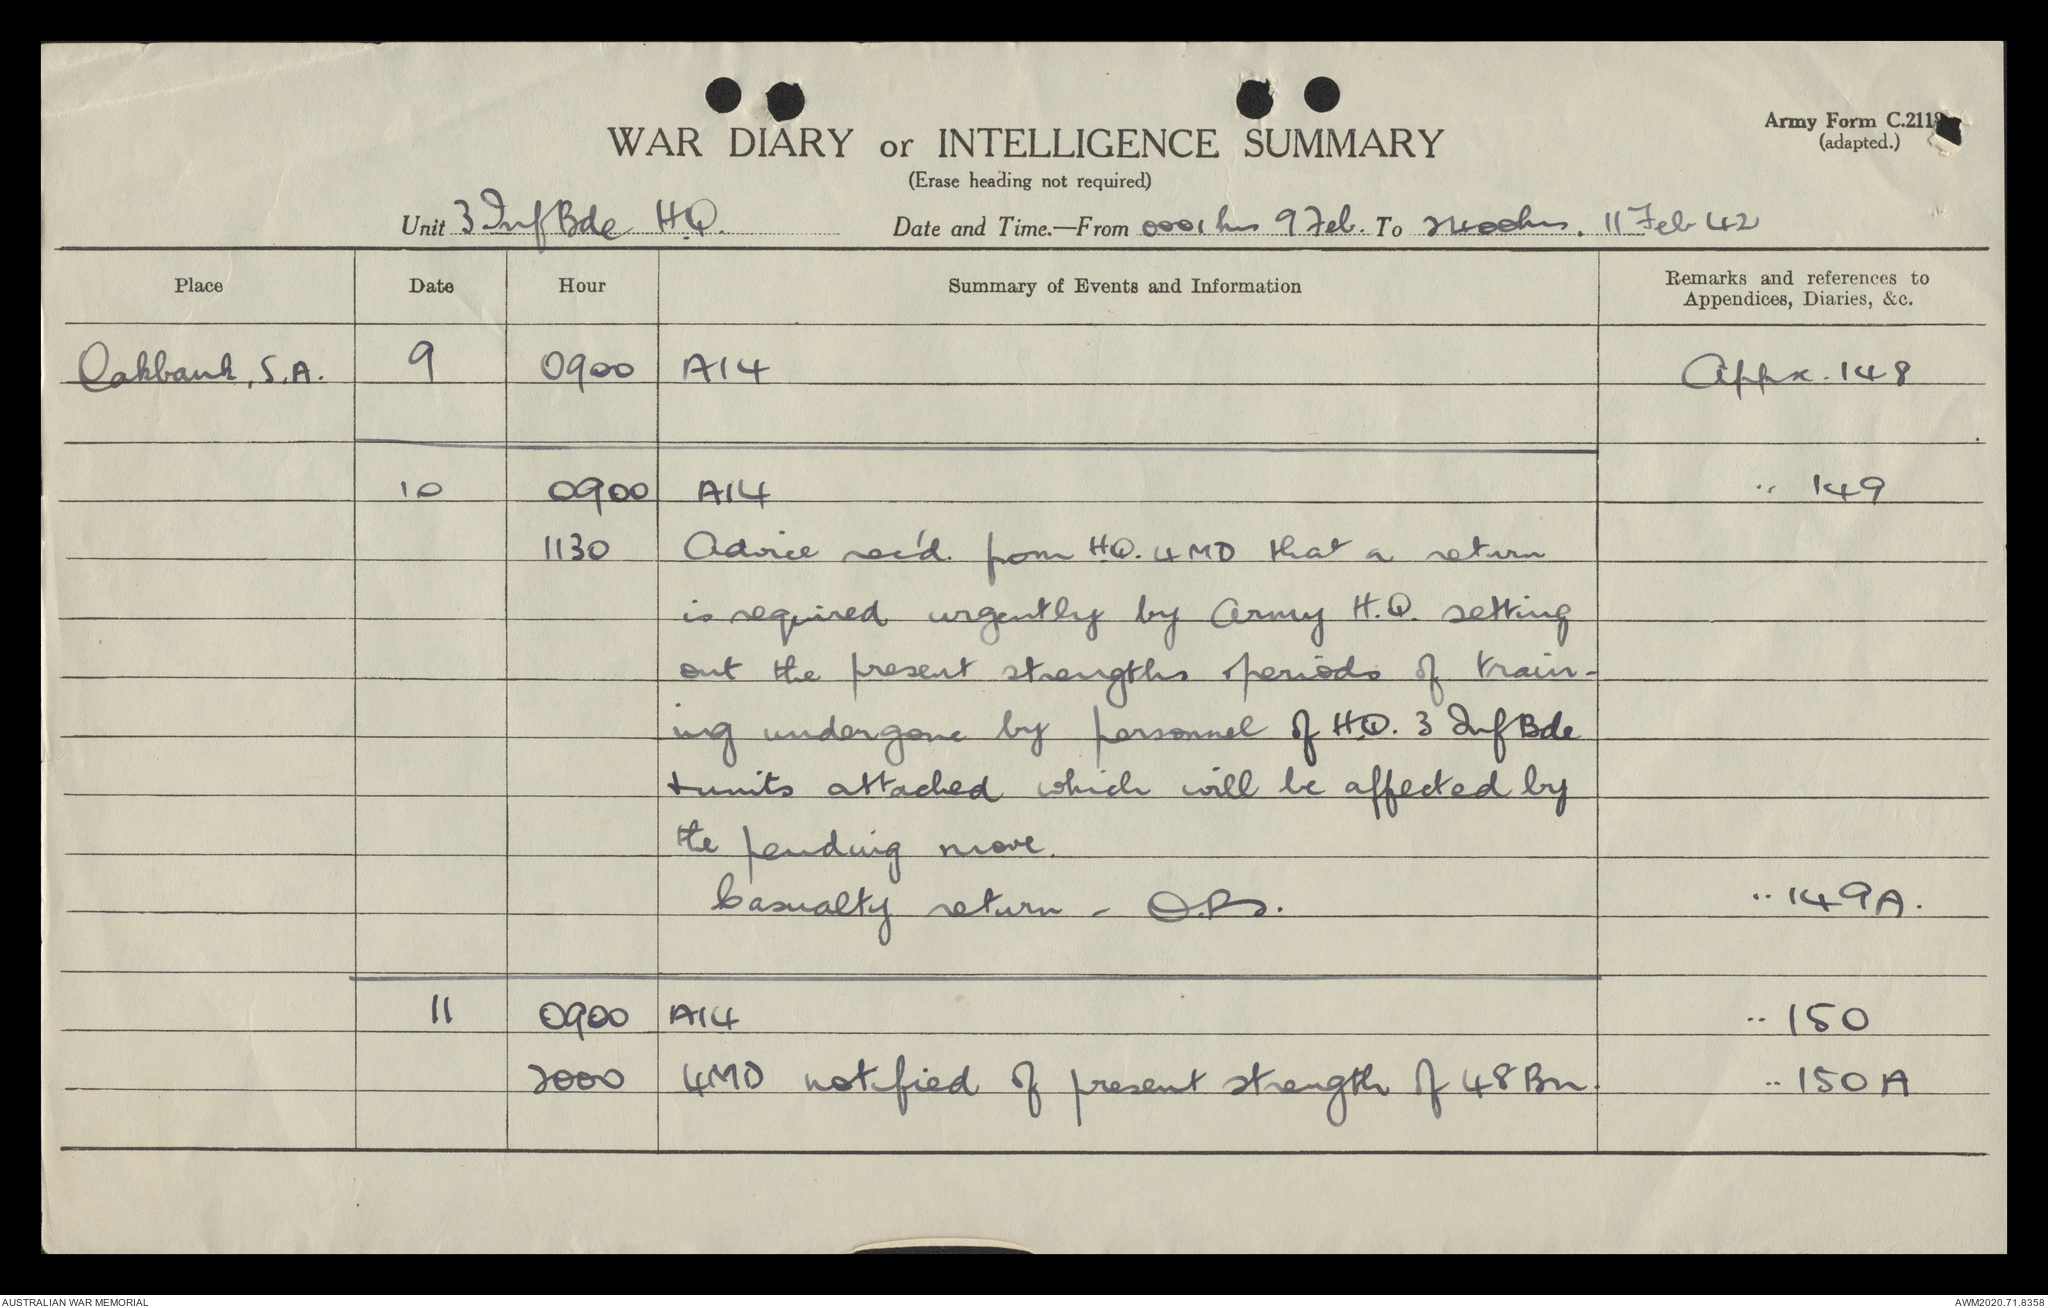 Army Form C.2118
(adapted.)
WAR DIARY or INTELLIGENCE SUMMARY
(Erase heading not required)
Unit 3 Inf Bde H.Q. Date and Time.—From 0001 hrs 9 Feb. To 2400 hrs. 11 Feb 42
Place Date Hour Summary of Events and Information Remarks and references to
Appendices, Diaries, &c.
Oakbank, S.A. 9 0900 A14 Appx. 148
10 0900 A14 " 149
1130 Advice rec'd. from H.Q. 4MD that a return
is required urgently by Army H.Q. setting
out the present strengths & periods of train-
ing undergone by personnel of H.Q. 3 Inf Bde
+ units attached which will be affected by
the pending move.
Casualty return - O.Rs. " 149A.
11 0900 A14 " 150
2000 4MD notified of present strength of 48 Bn. " 150A
AUSTRALIAN WAR MEMORIAL AWM2020.71.8358